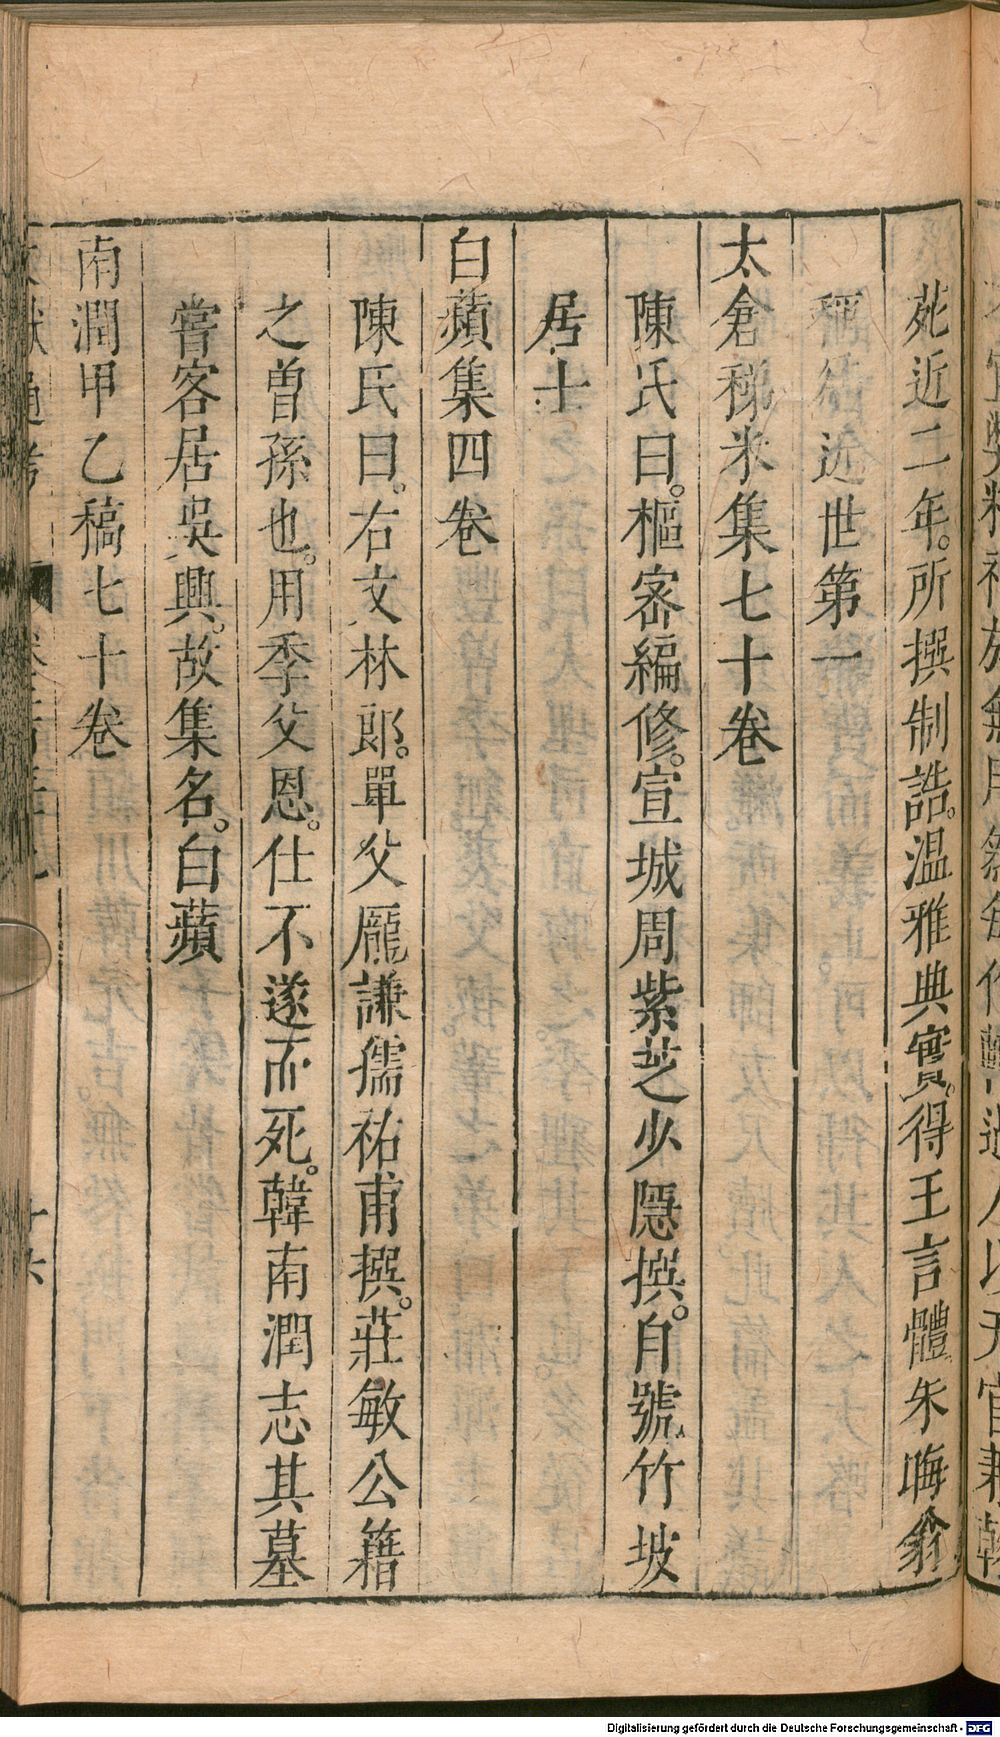 苑近二年。所撰制誥。温雅典實。得王言體。朱晦翁
稱倚近世第一
太倉稊米集七十卷
陳氏曰。樞密編修。宣城周紫芝少隱撰。自號竹坡
居士
白蘋集四卷
陳氏曰。右文林郎。單父龐謙孺祐甫撰。莊敏公籍
之曾孫也。用季父恩。仕不遂而死。韓南澗志其墓
嘗客居吳興。故集名。白蘋
南澗甲乙稿七十卷
Digitalisierung gefördert durch die Deutsche Forschungsgemeinschaft - DFG